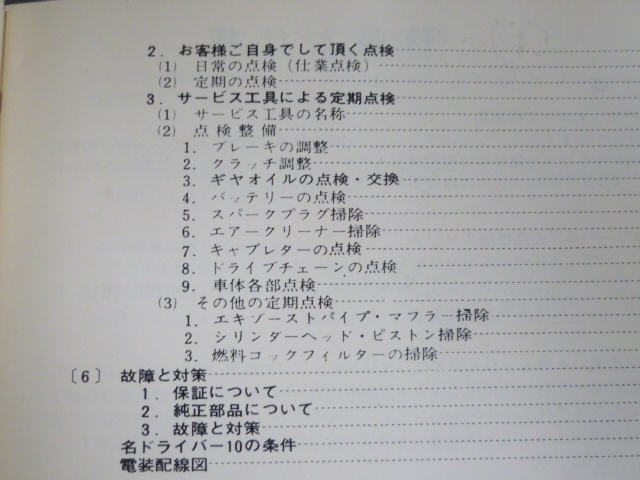 2. お客様ご自身でして頂く点検
(1) 日常の点検(仕業点検)
(2) 定期の点検
3. サービス工具による定期点検
(1) サービス工具の名称
(2) 点検整備
1. ブレーキの調整
2. クラッチ調整
3. ギヤオイルの点検・交換
4. バッテリーの点検
5. スパークプラグ掃除
6. エアークリーナー掃除
7. キャブレターの点検
8. ドライブチェーンの点検
9. 車体各部点検
(3) その他の定期点検
1. エキゾーストパイプ・マフラー掃除
2. シリンダーヘッド・ピストン掃除
3. 燃料コックフィルターの掃除
〔6〕 故障と対策
1. 保証について
2. 純正部品について
3. 故障と対策
名ドライバー10の条件
電装配線図